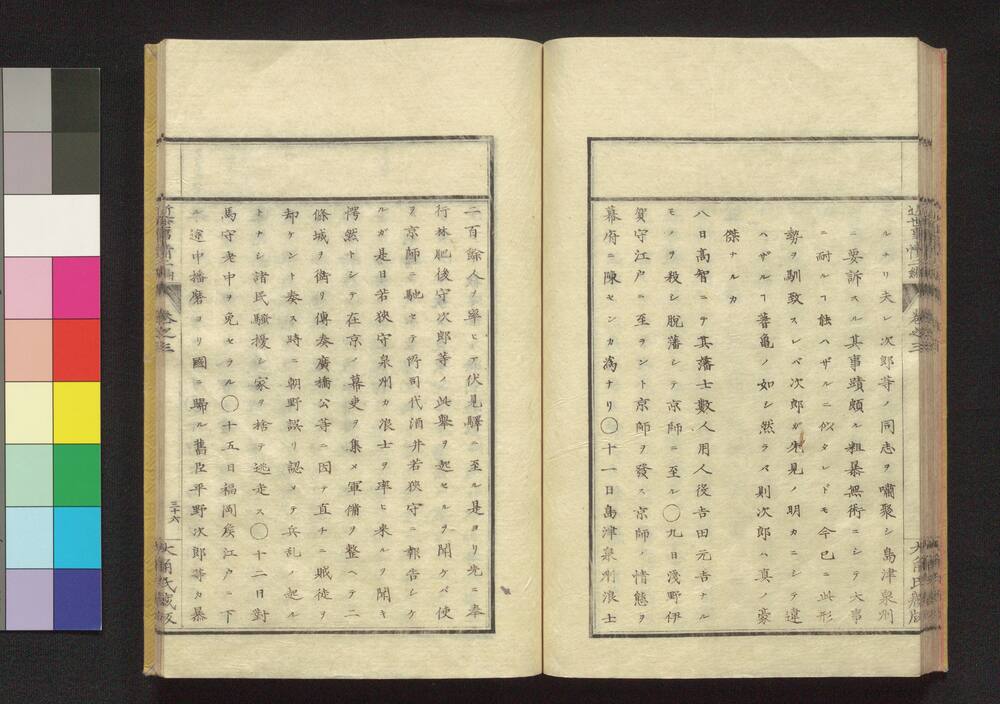 ルナリ夫レ次郎等ノ同志ヲ嘯聚シ島津泉州
ニ要訴スル其事蹟頗ル粗暴無術ニシテ大事
ニ耐ルヿ能ハザルニ似タレドモ今已ニ此形
勢ヲ馴致スレバ次郎ガ先見ノ明カニシテ違
ハザルヿ蓍亀ノ如シ然ラバ則次郎ハ真ノ豪
傑ナルカ
八日高智ニテ其藩士數人用人役吉田元吉ナル
モノヲ殺シ脱藩シテ京師ニ至ル〇九日淺野伊
賀守江戸ニ至ラント京師ヲ發ス京師ノ情態ヲ
幕府ニ陳セン為ナリ〇十一日島津泉州浪士
二百餘人ヲ率ヒテ伏見驛ニ至ル是ヨリ先ニ奉
行林肥後守次郎等ノ此舉ヲ起セルヲ聞ケバ使
ヲ京師ニ馳セテ所司代酒井若狭守ニ報告シケ
ルガ是日若狭守泉州カ浪士ヲ率ヒ来ルヲ聞キ
愕然トシテ在京ノ幕吏ヲ集メ軍備ヲ整ヘテ二
條城ヲ衛リ傳奏廣橋公等ニ因テ直チニ賊徒ヲ
却ケント奏ス時ニ朝野誤リ認メテ兵乱ノ起ル
トナシ諸民騒擾シ家ヲ捨テ逃走ス〇十二日對
馬守老中ヲ免セラル〇十五日福岡矦江戸ニ下
ル途中播磨ヨリ國ニ歸ル舊臣平野次郎等カ暴
近世事情二編
巻之三
三十六
大角氏蔵版